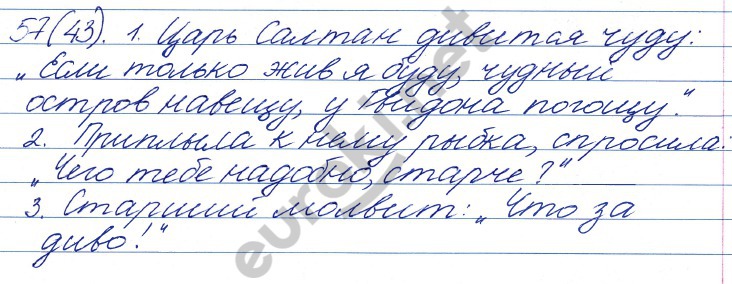 57(43). 1. Царь Салтан дивится чуду:
„Если только жив я буду, чудный
остров навещу, у Гвидона погощу."
2. Приплыла к нему рыбка, спросила:
„Чего тебе надобно, старче?"
3. Старший молвит: „Что за
диво!"
euroki.net